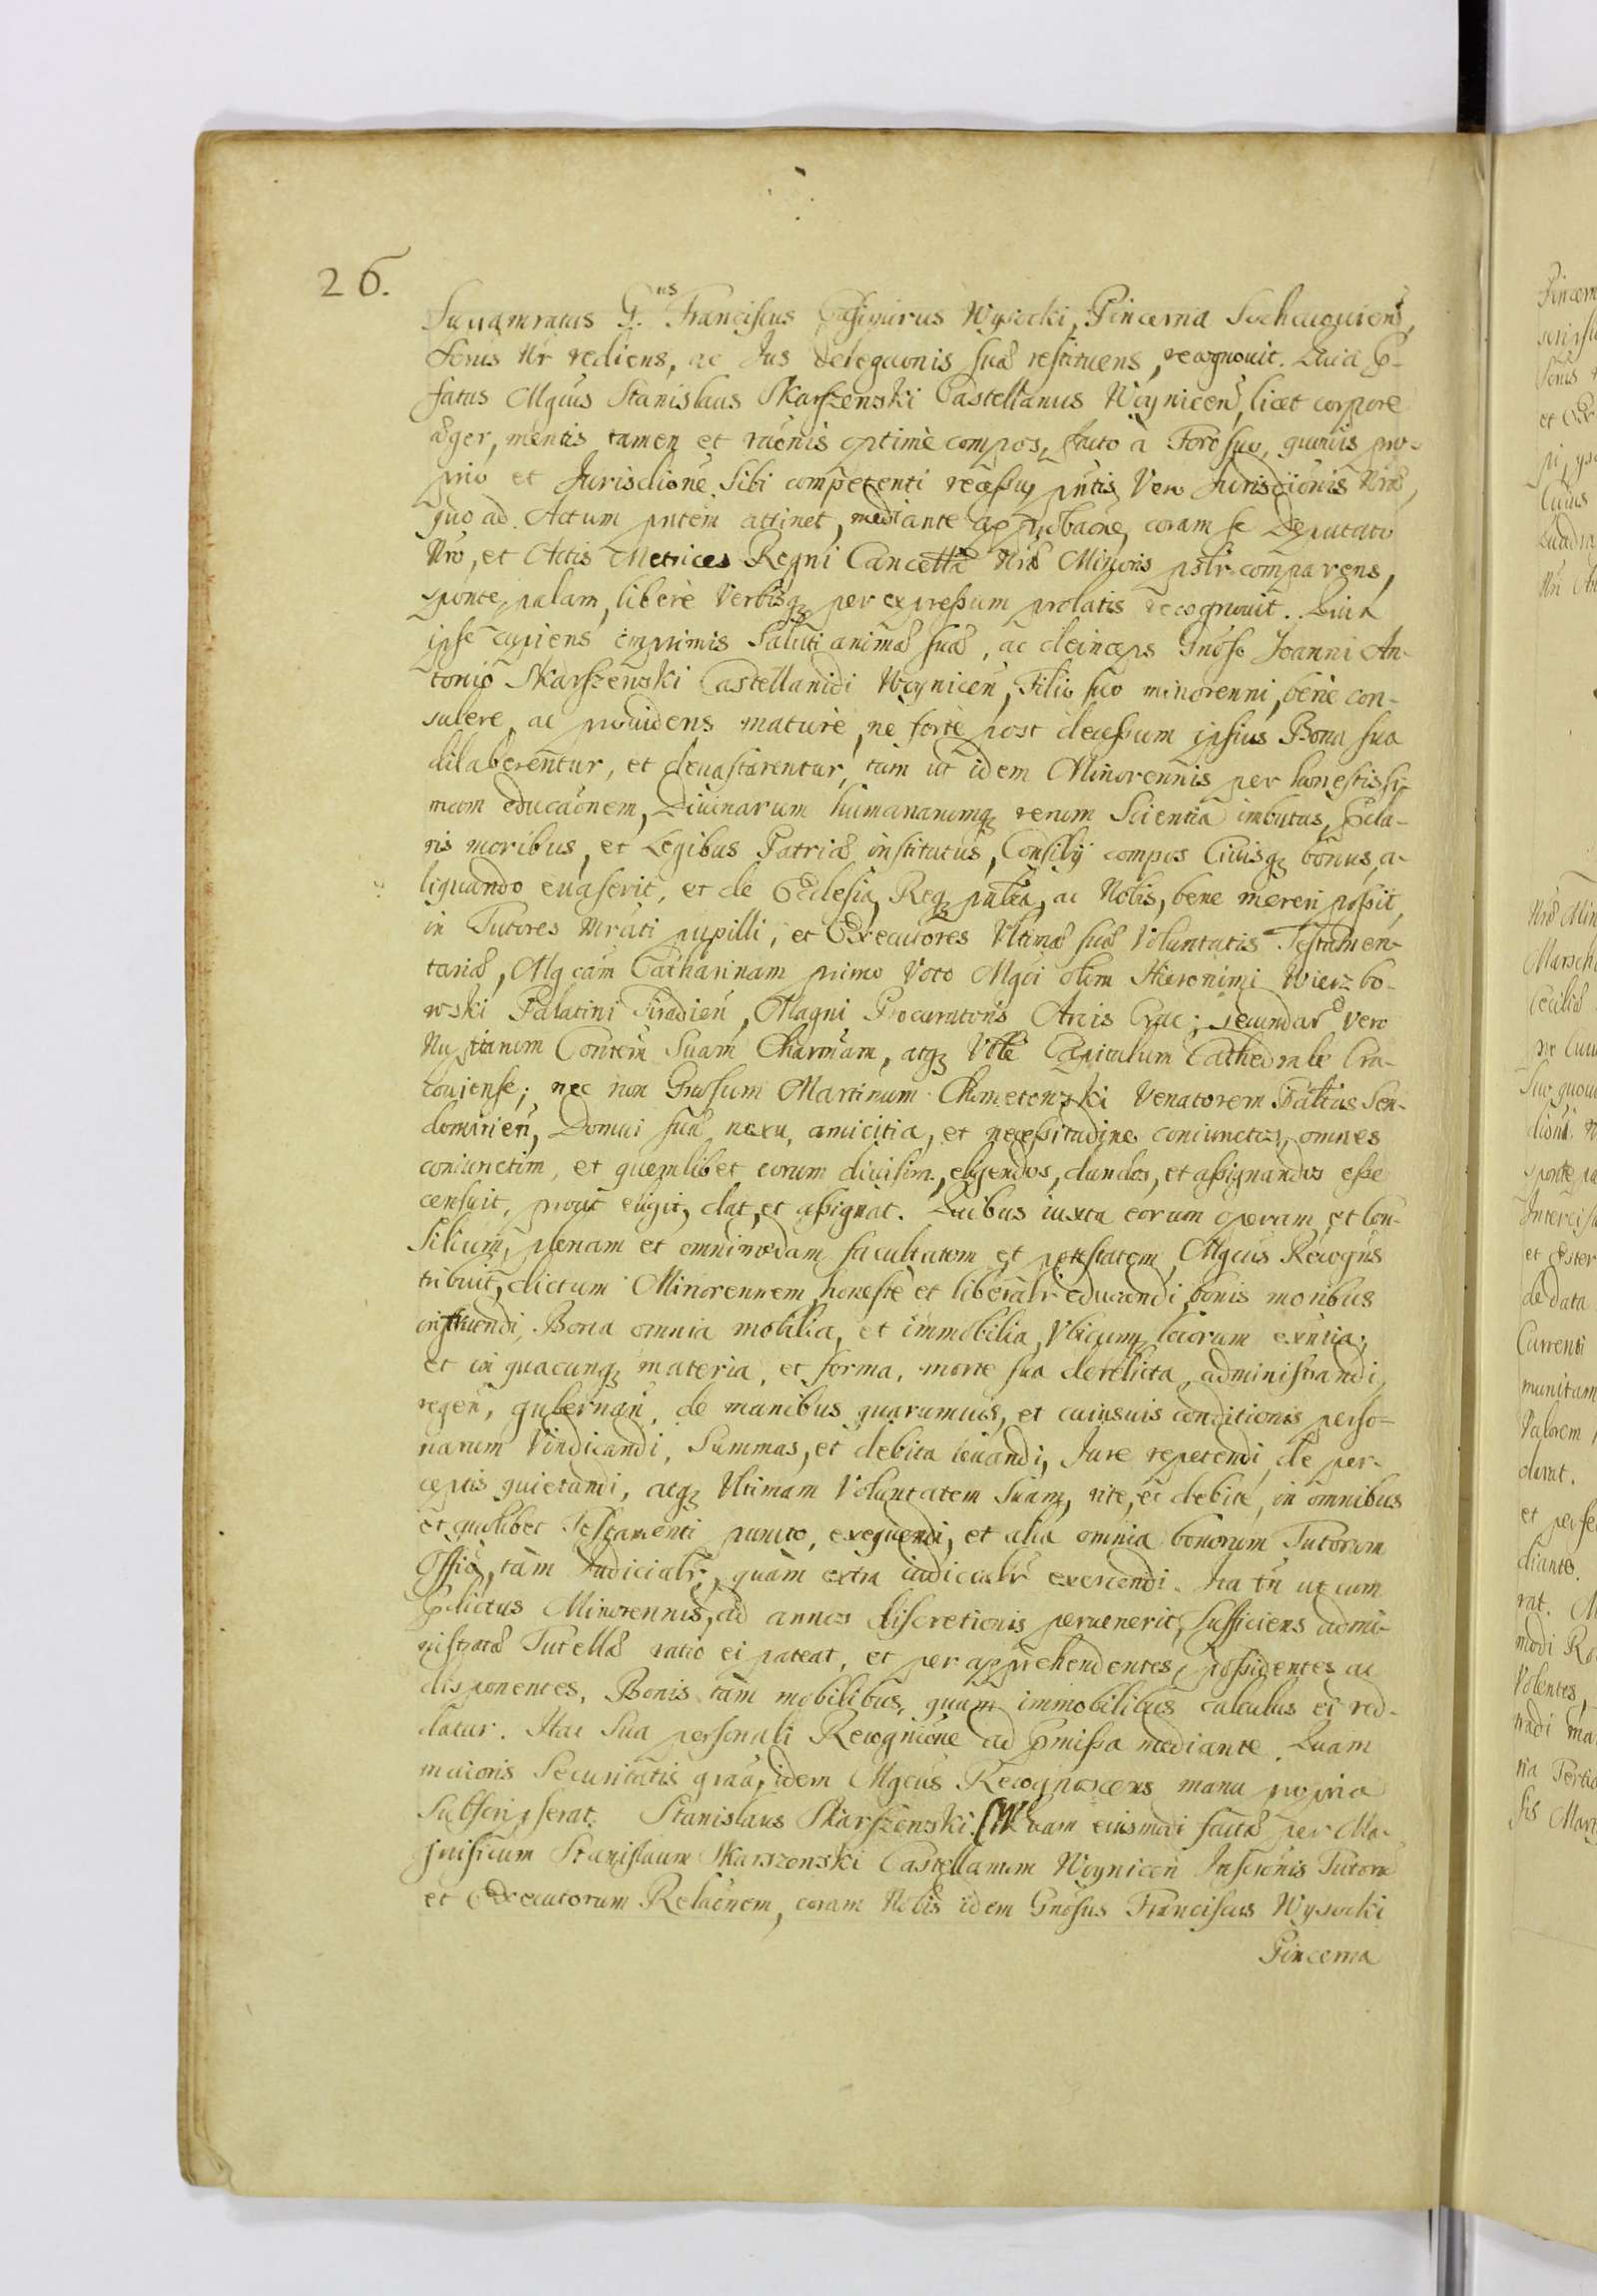 26.
Supranratus G.ns Franciscus Casimirus Wysocki, Pincerna Sochacouien̄,
Seriis Nr̄ rediens, ac Jus delegaōnis suæ restituens, recognouit. Quia P̄-
fatus Mgcus Stanislaus Skarszenski Castellanus Woynicen̄, licet corpore
æger, mentis tamen et raōnis optimè compos, facto à Foro suo, quouis pro-
prio et Jurisdione Sibi competenti recessu, pn̄tis Vero Jurisdiōnis Nr̄æ,
quo ad Actum pn̄tem attinet, mediante approbaōne, coram se Deputato
Nr̄o, et Actis Metrices Regni Cancellæ Nr̄æ Minoris psl̄r comparens,
sponte, palam, liberè Verbisq; per expressum prolatis recognouit. Quia
ipse cupiens imprimis Saluti animæ suæ, ac deinceps Gnōso Joanni An-
tonio Skarszenski Castellanidi Woynicen̄, Filio suo minorenni, benè con-
sulere, ac prouidens maturè, ne fortè post decessum ipsius Bona sua
dilaberentur, et deuastarentur, tum ut idem Minorennis per honestissi-
mam educaōnem, Diuinarum humanarumq; rerum Scientia imbutus, P̄cla-
ris moribus, et Legibus Patriæ institutus, Consilij compos Ciuisq; bonus, a-
liquando euaserit, et de Ecclesia, Req; publ̄ca, ac Nobis, bene mereri possit,
in Tutores Mrāti pupilli, et Executores Vltimæ suæ Voluntatis Testamen-
tariæ, Mgcam Catharinam primo Voto Mgci olim Hieronimi Wierzbo-
wski Palatini Siradien̄, Magni Procuratoris Arcis Crac; secundar̄ Vero
Nuptiarum Contem̄ Suam Charm̄am, atq; Vble Capitulum Cathedrale Cra-
couiense; nec non Gnōsum Martinum Chometowski Venatorem Palt̄us Sen-
domirien̄, Domui suæ nexu, amicitia, et necessitudine coniunctos, omnes
coniunctim, et quemlibet eorum diuisim, eligendos, dandos, et assignandos esse
censuit, prout eligit, dat, et assignat. Quibus iuxta eorum operam, et Con-
silium, plenam et omnimodam facultatem et potestatem Mgcus Recogn̄s
tribuit, dictum Minorennem honestè et liberalr̄ educandi, bonis moribus
instruendi, Bona omnia mobilia, et immobilia, Vbicunq; locorum exn̄tia,
et in quacunq; materia, et forma, morte sua derelicta, administrandi,
regen̄, gubernan̄, de manibus quarumuis, et cuiusuis conditionis perso-
narum Vindicandi, Summas, et debita leuandi, Jure repetendi, de per-
ceptis quietandi, atq; Vltimam Voluntatem Suam, rite, et debitè, in omnibus
et quolibet Testamenti puncto, exequendi, et alia omnia bonorum Tutorum
Officia, tàm Judicialr̄, quàm extra iudicialr̄ exercendi. Ita tn̄ ut cum
P̄dictus Minorennis, ad annos discretionis peruenerit, Sufficiens admi-
nistratæ Tutellæ ratio ei pateat, et per apprehendentes, possidentes ac
disponentes, Bonis tàm mobilibus, quam immobilibus calculus ei red-
datur. Hac Sua personali Recogniōne ad P̄missa mediante. Quam
maioris Securitatis grā̄, idem Mgcus Recognoscens manu propria
Subscripserat. Stanislaus Skarszenski. Quam eiusmodi factæ per Ma-
gnificum Stanislaum Skarszenski Castellanum Woynicen̄ Inscr̄onis Tutoru͞
et Executorum Relaōnem, coram Nobis idem Gnōsus Franciscus Wysocki
Pincerna